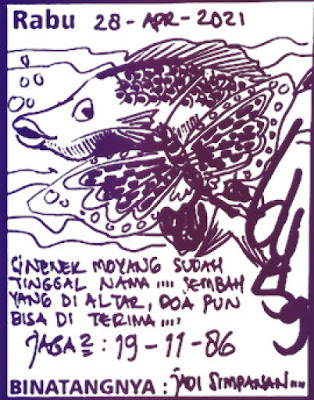 Rabu 28 - APR - 2021
CiNENEK MOYANG SUDAH
TINGGAL NAMA .... SEMBAH
YANG DI ALTAR, DOA PUN
BISA DI TERIMA ....
JAGA2 : 19 - 11 - 86
BINATANGNYA : JADI SIMPANAN ...